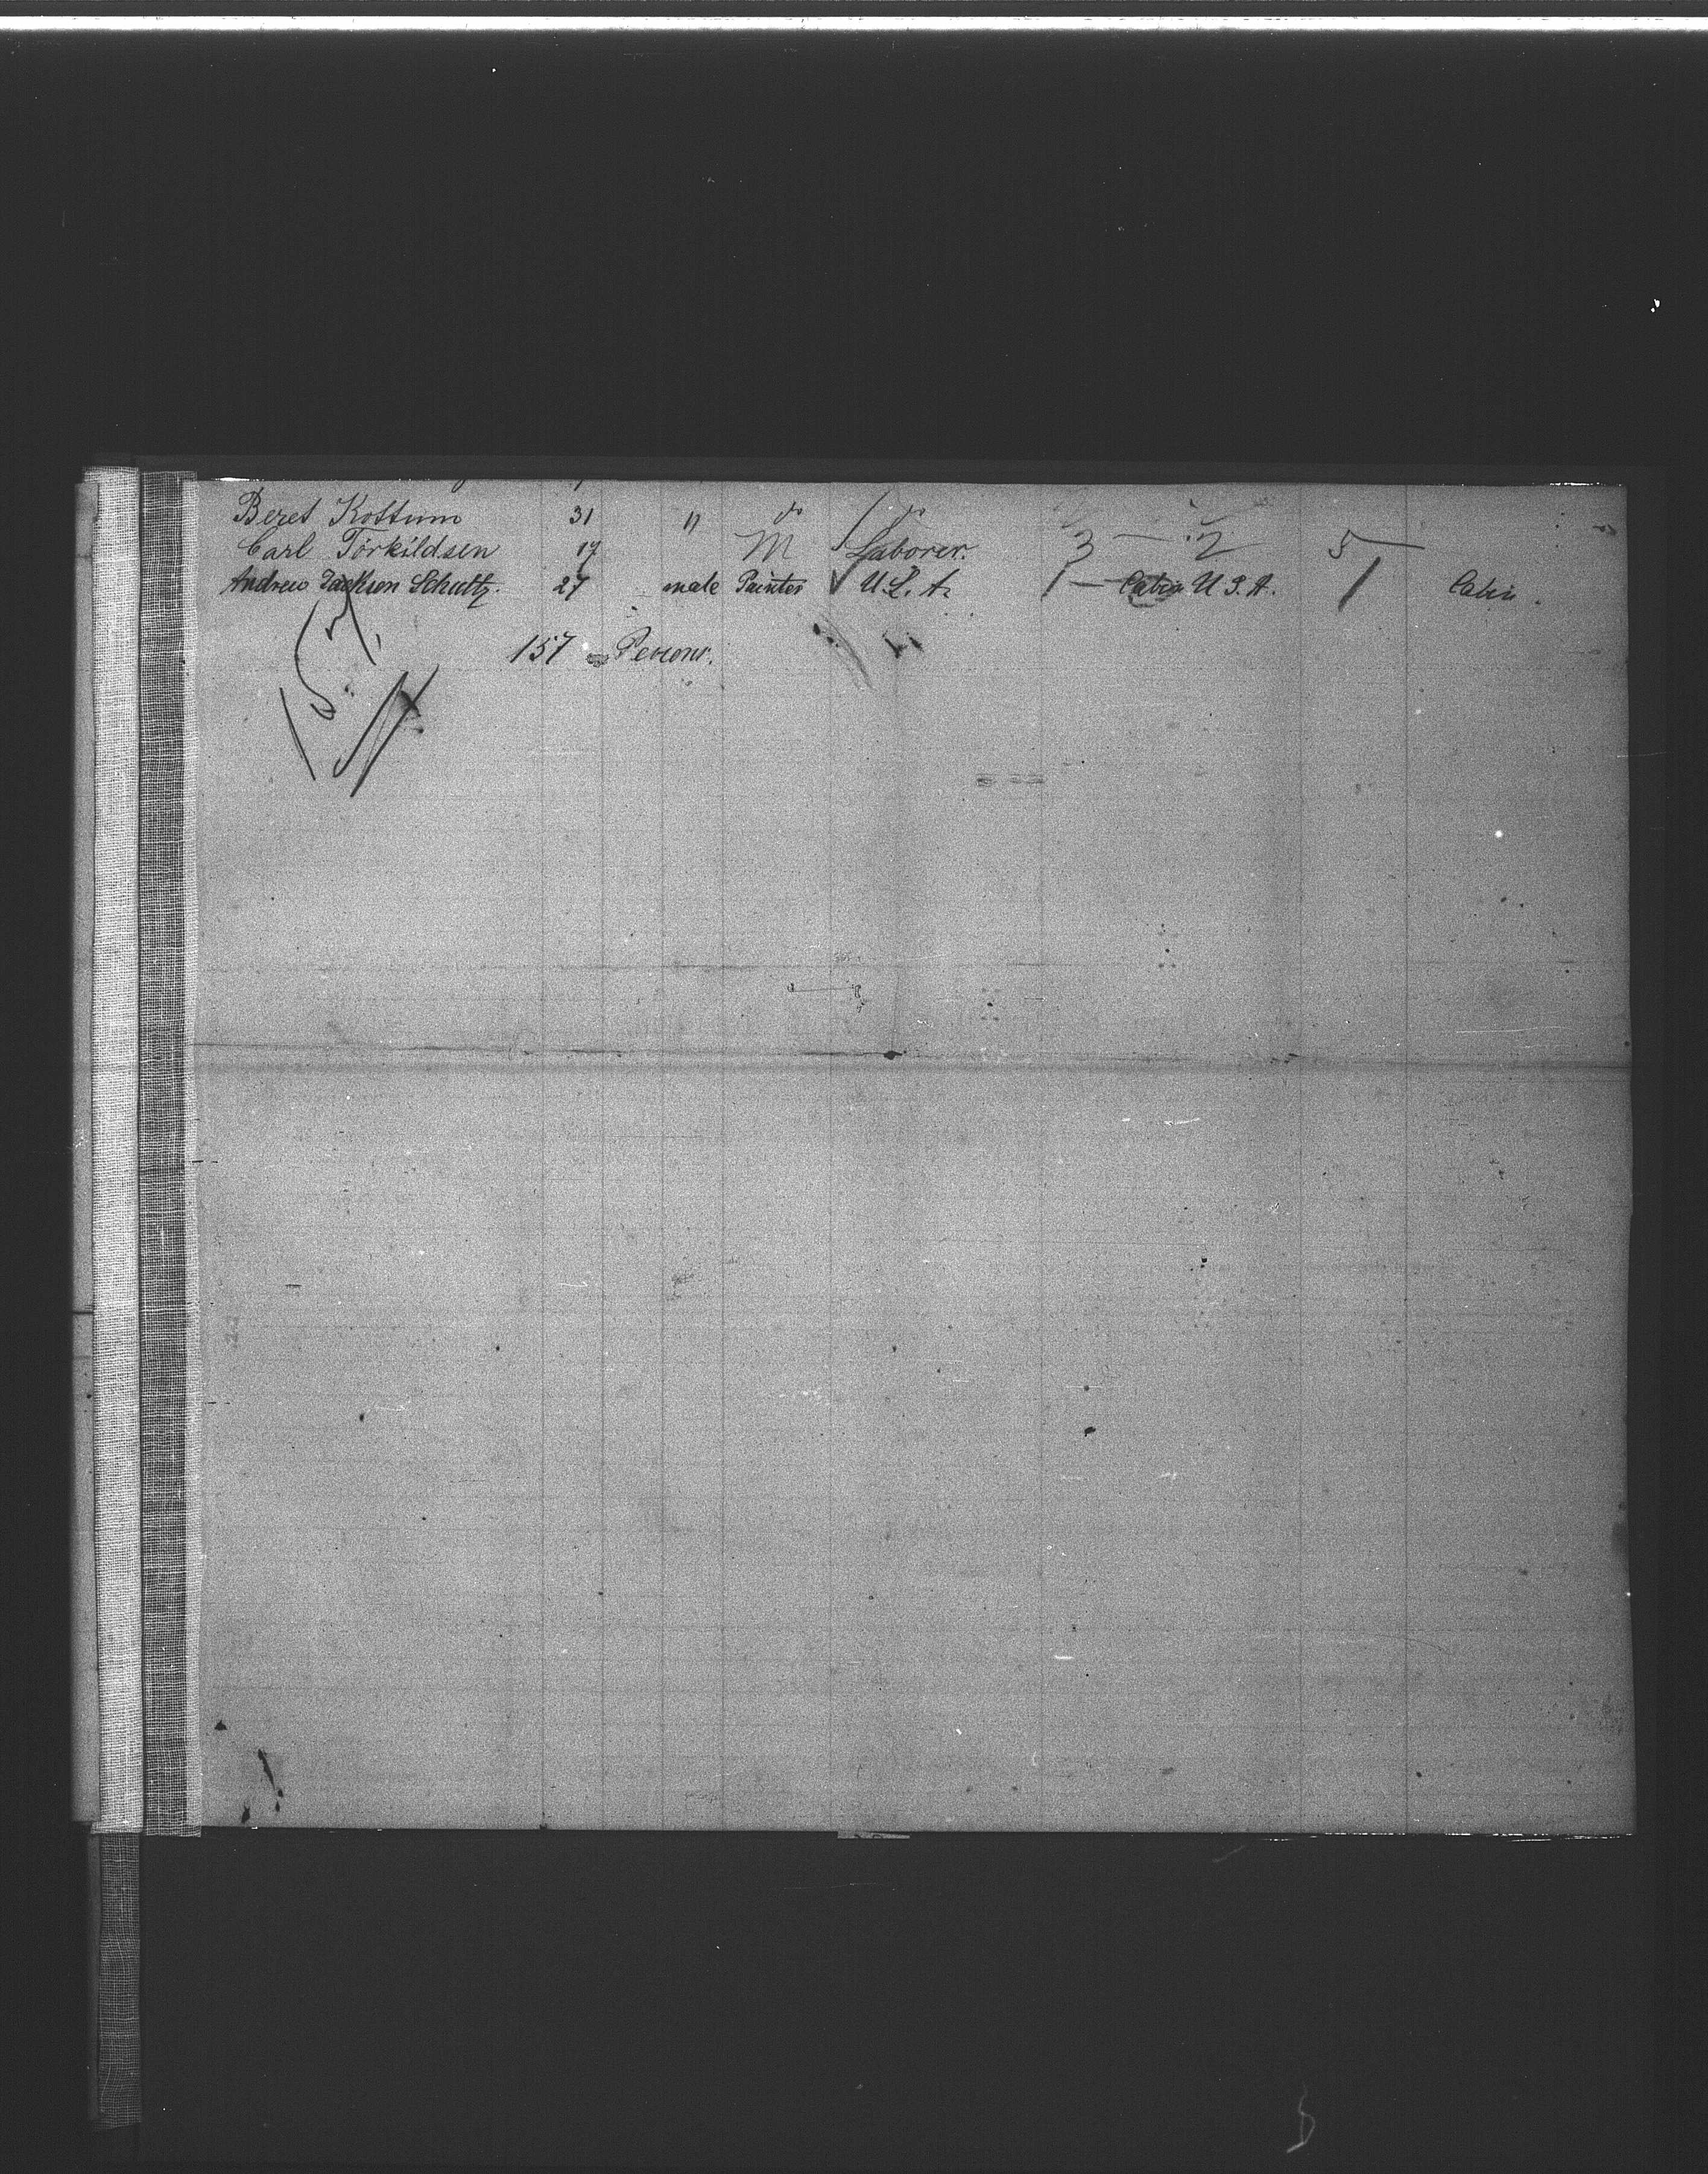 Beret Kottum 31 " do do
Carl Törkildsen 17 M Laborer. 3 — 2 5 —
Andrew Jackson Schultz. 27 male Painter U.S.A. 1 — Cabin U.S.A. 1 Cabin.
157 Persons.